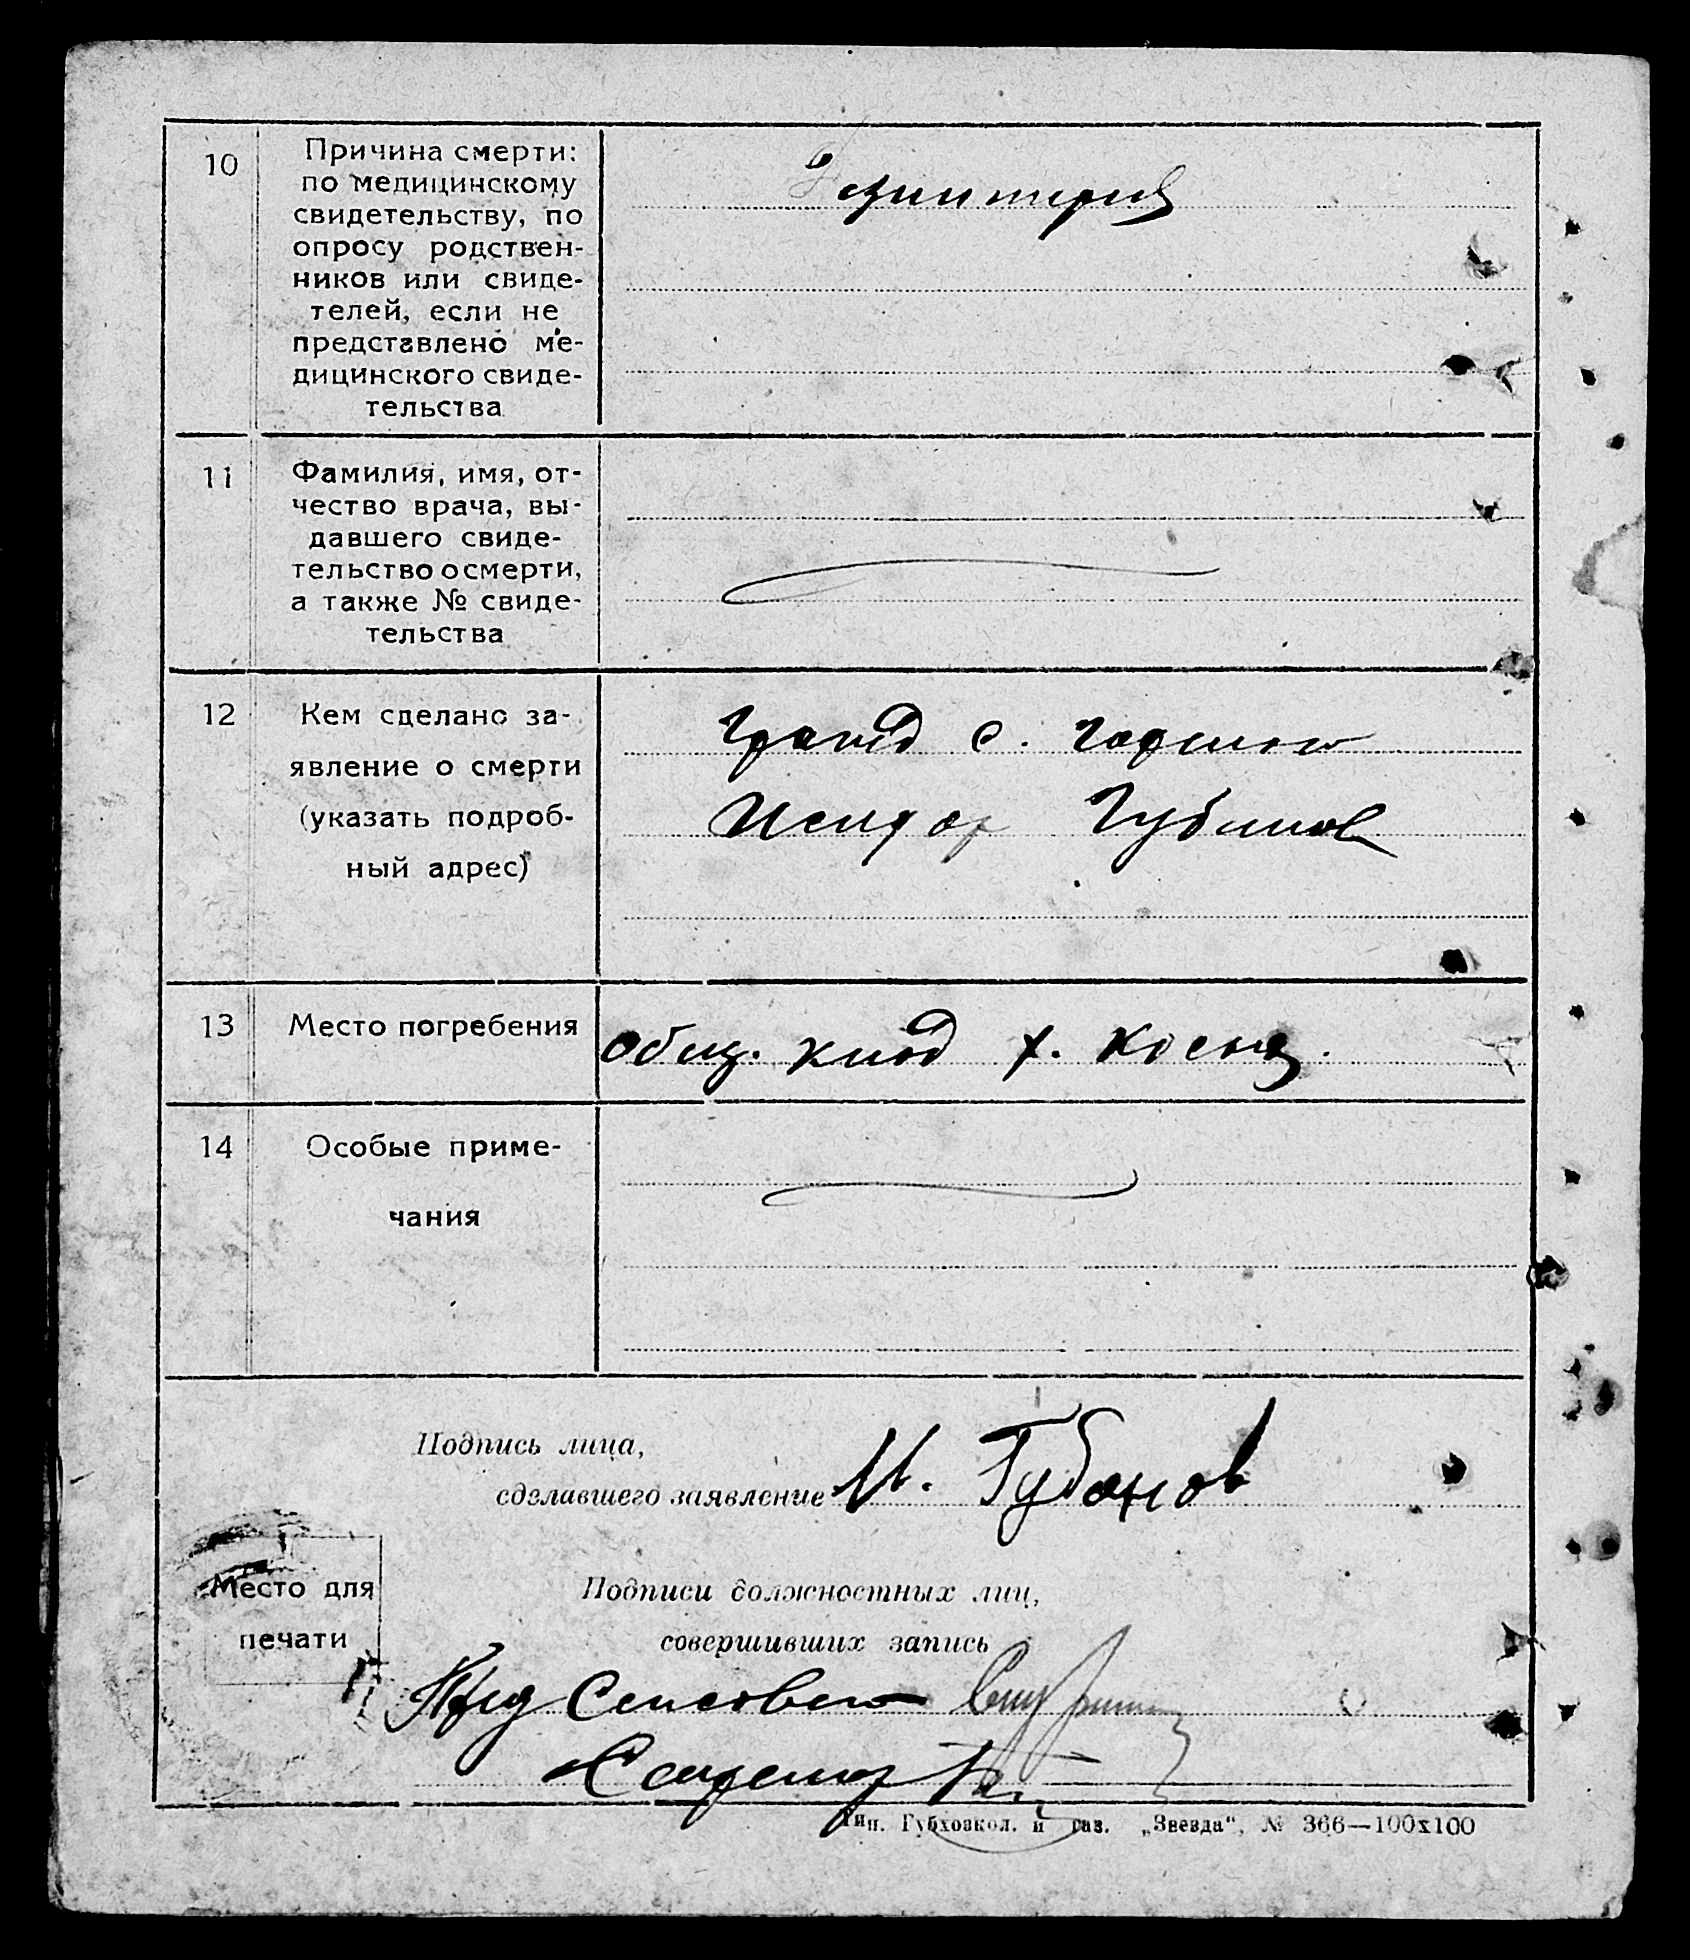 10
Причина смерти:
по медицинскому
свидетельству, по
опросу родствен-
ников или свиде-
телей, если не
представлено ме-
дицинского свиде-
тельства
11
Фамилия, имя, от-
чество врача, вы-
давшего свиде-
тельство о смерти,
а также № свиде-
тельства
12
Кем сделано за-
явление о смерти
(указать подроб-
ный адрес)
Гражд с.
Исидор Губанов
13
Место погребения
Общ. клад х.
14
Особые приме-
чания
Подпись лица,
сделавшего заявление И. Губанов
Место для
печати
Подписи должностных лиц,
совершивших запись
Пред Сельсовета
Секретар
Тип. Губхозкол. и газ. „Звезда“, № 366—100х100